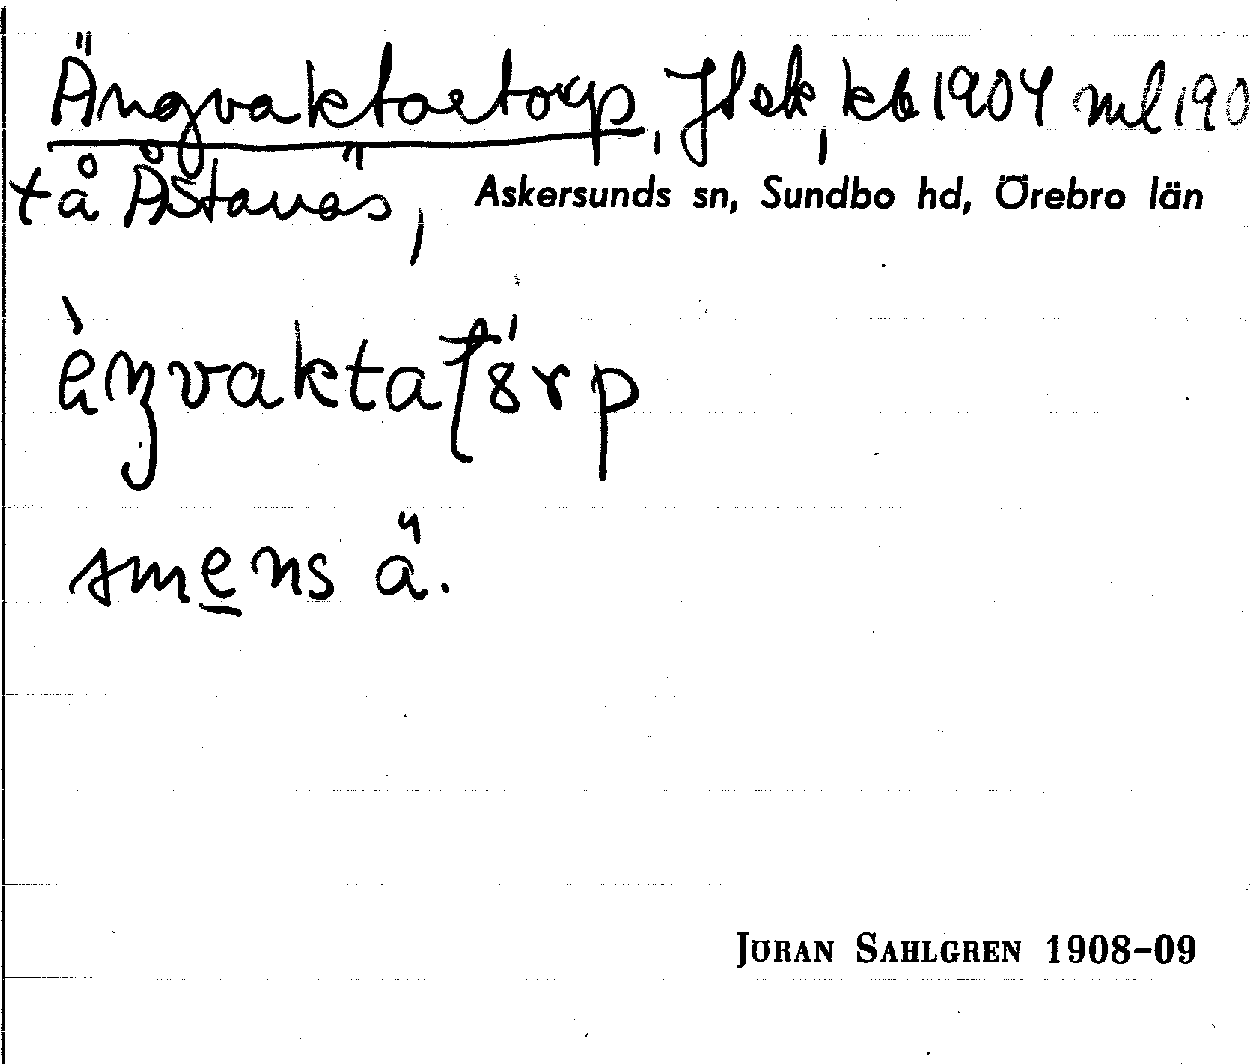 Ängvaktaretorp, Jlsk, kb 1904 ml 190
tå Åstanäs, Askersunds sn, Sundbo hd, Örebro län
smens ä.
JÖRAN SAHLGREN 1908-09